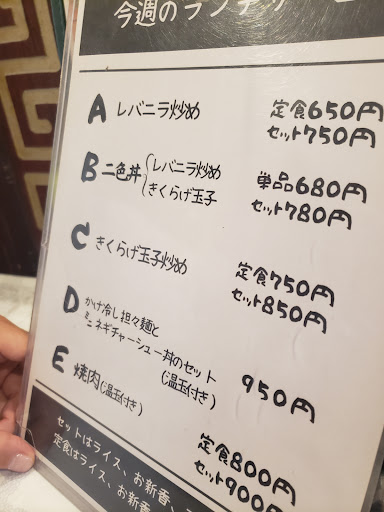 今週のランチ
A レバニラ炒め 定食650円
セット750円
B 二色丼{レバニラ炒め 単品680円
きくらげ玉子 セット780円
C きくらげ玉子炒め 定食750円
セット850円
D かけ冷し担々麺と
ミニネギチャーシュー丼のセット 950円
(温玉付き)
E 焼肉(温玉付き) 定食800円
セット900円
セットはライス、お新香、
定食はライス、お新香